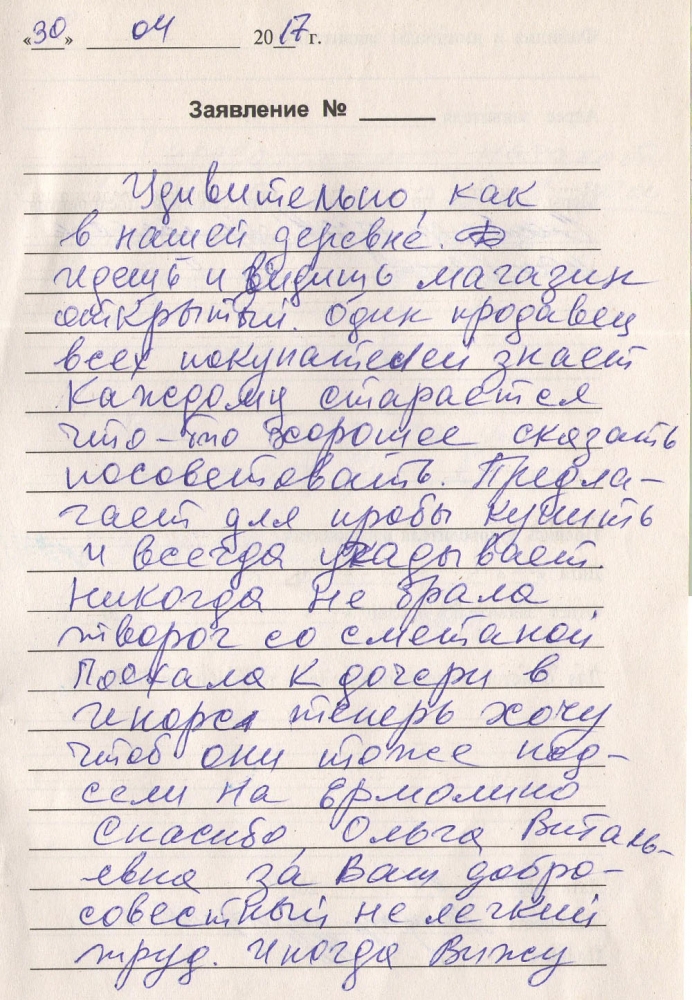 «30» 04 2017 г.
Заявление № ____
Удивительно, как
в нашей деревне.
идешь и видишь магазин
открытый. Один продавец
всех покупателей знает
Каждому старается
что-то хорошее сказать
посоветовать. Предла-
гает для пробы купить
и всегда угадывает.
Никогда не брала
творог со сметаной
Поехала к дочери в
теперь хочу
чтоб они тоже под-
сели на Ермолино
Спасибо, Ольга Виталь-
евна за Ваш добро-
совестный не легкий
труд. Иногда Вижу